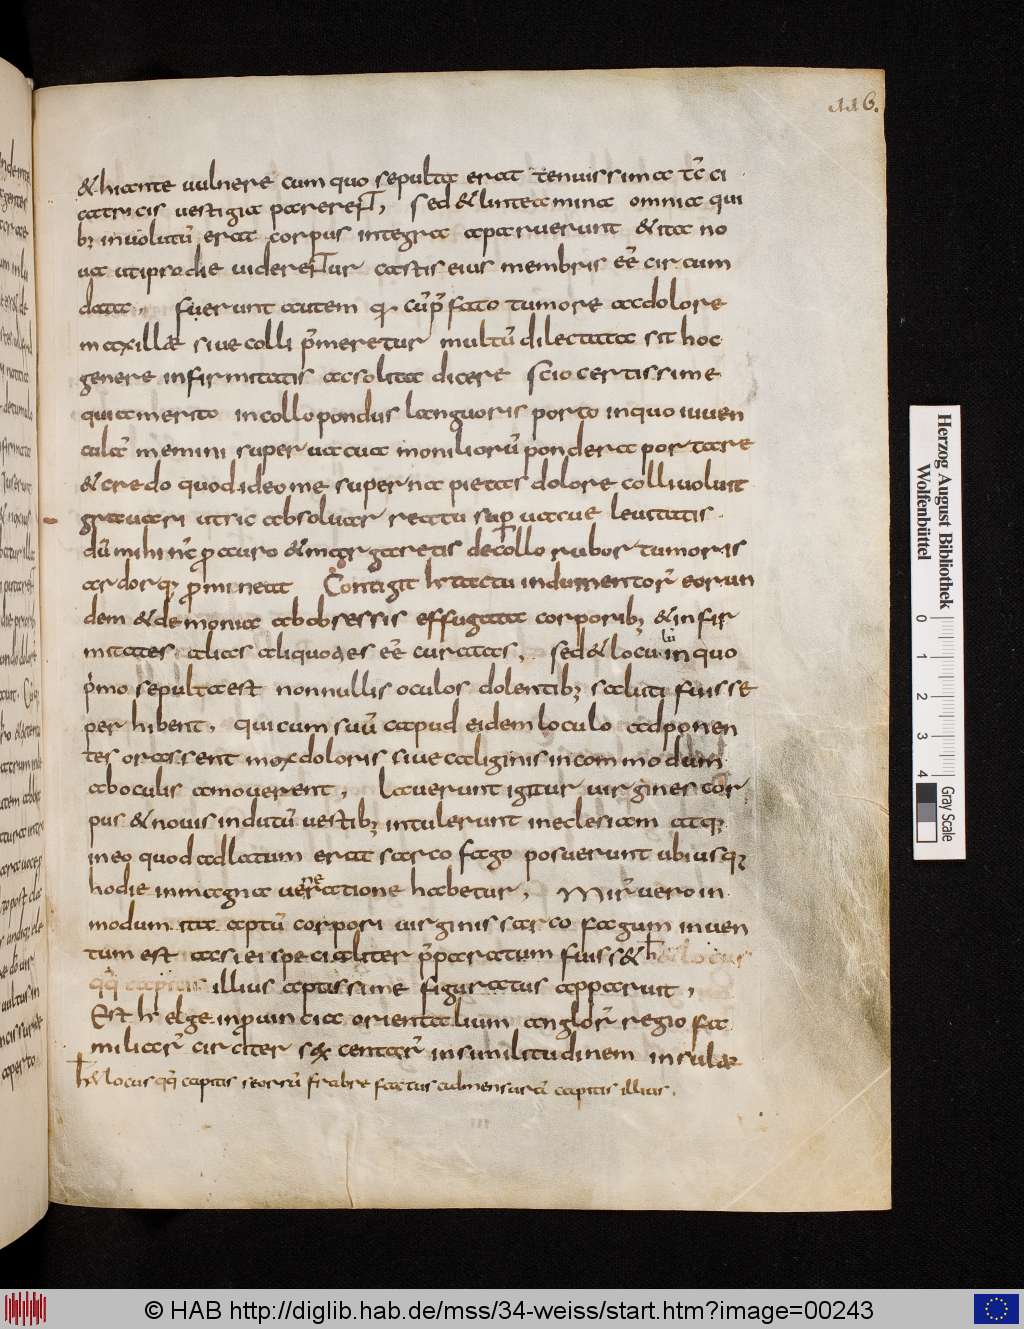 116.
& hiante uulnere cum quo sepulta erat tenuissima tc̄ ci
catricis uestigia parerent, sed & linteamina omnia qui
bꝫ inuolutū erat corpus integra apparuerunt & ita no
ua uti prodie uiderentur castis eius membris eē circum
data, fuerunt autem
tumore ac dolore
maxillae siue colli p̄meretur multū dilectata sit hoc
genere infirmitatis ac solita dicere Scio certissime
quia merito in collo pondus languoris porto in quo iuuen
culā memini super uacua moniliorū pondera portare
& credo quod ideo me superna pietas dolore colli uoluit
grauari ut sic absoluar reatu sup̱ uacue leuitatis
dū mihi nc̄ ꝓ auro & margaretis de collo rubor tumoris
ardorqꝫ ꝓmineat Contigit h̄ tactu indumentoꝝ eorun
dem & demonia ab obsessis effugata corporibꝫ & infir
mitates alias aliquoties eē curatas, sed & locu
lū
in quo
p̄mo sepulta est nonnullis oculos dolentibꝫ saluti fuisse
perhibent, qui cum suū capud eidem loculo adponen
tes orassent mox doloris siue caliginis incommodum
ab oculis amouerent, Lauerunt igitur uirgines cor
pus & nouis indutū uestibꝫ intulerunt in eclesiam atqꝫ
in eo quod adlatum erat sarcofago posuerunt ubi usqꝫ
hodie in magna ueneratione habetur, Mir̄ uero in
modum ita aptū corpori uirginis sarcofagum inuen
tum est ac si ei specialiter p̄paratum fuiss& h̄ & locus
qq̄ capitis illius aptissime figuratus apparuit,
Est h̄ elge in prouincia orientalium angloꝝ regio fa
miliaꝝ circiter sexcentaꝝ in similitudinem insulae
h̄ & locus qq̄ capitis seorsū frabre factus ad mensurā capitis illius.
Herzog August Bibliothek
Wolfenbüttel
0 1 2 3 4
Gray Scale
© HAB http://diglib.hab.de/mss/34-weiss/start.htm?image=00243